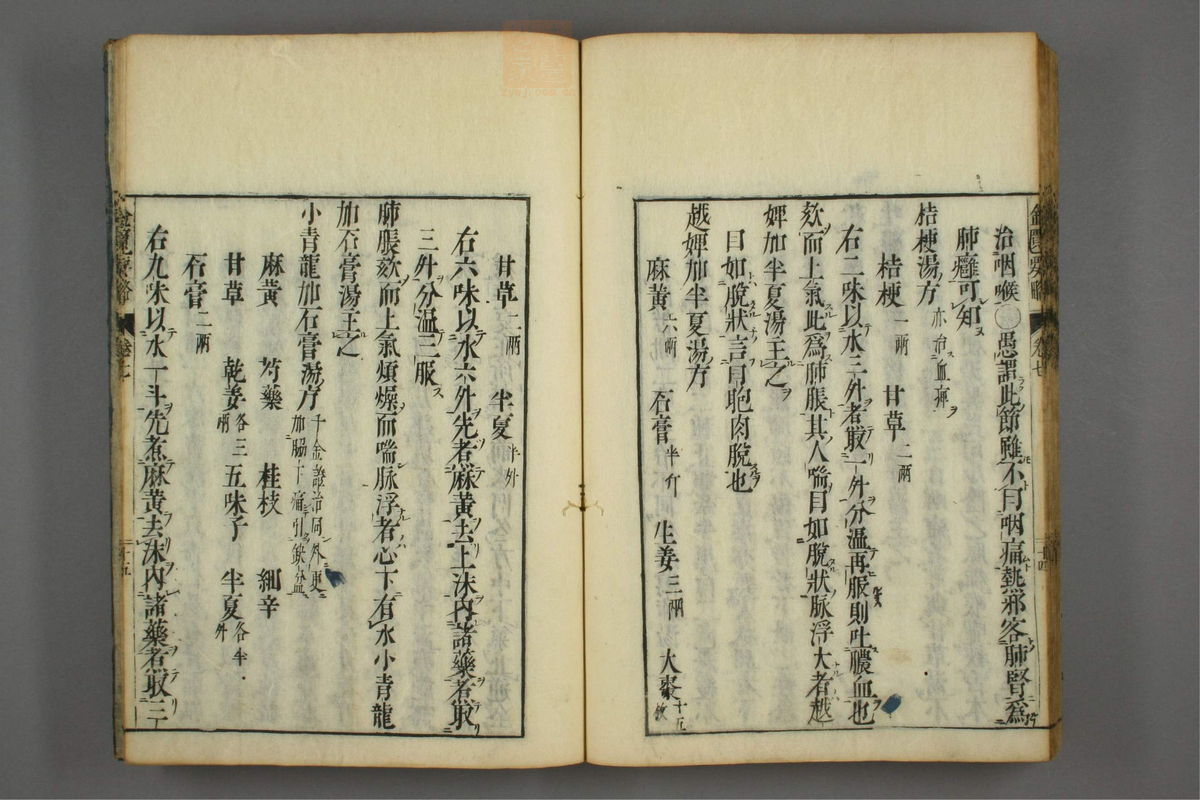 治咽喉愚謂此節雖不曰咽痛熱邪客肺腎爲
肺癰可知
桔梗湯方亦治血痺
桔梗一兩 甘草二兩
右二味以水三升煮取一升分温再服則吐膿血也
欬而上氣此爲肺脹其人喘目如脫狀脉浮大者越
婢加半夏湯主之
目如脫狀言目胞肉脫也
越婢加半夏湯方
麻黄六兩 石膏半斤 生姜三兩 大棗十五枚
甘草二兩 半夏半升
右六味以水六升先煮麻黄去上沫内諸藥煮取
三升分温三服
肺脹欬而上氣煩燥而喘脉浮者心下有水小青龍
加石膏湯主之
小青龍加石膏湯方千金證治同外更加脇下痛引缺盆
麻黄 芍藥 桂枝 細辛
甘草 乾姜各三兩 五味子 半夏各半升
石膏二兩
右九味以水一斗先煮麻黄去沫内諸藥煮取三
金匱要略 卷七 十四
金匱要略 卷七 十五